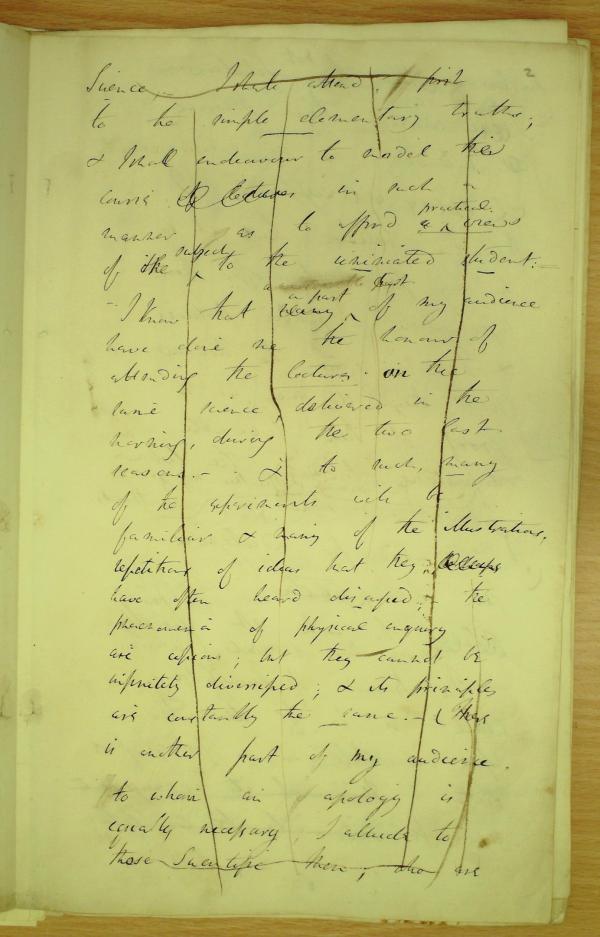 2
Science, I shall attend, first
to the simple elementary truths;
& I shall endeavour to model this
course of lectures in such a
practical
manner as to afford views
subject
of the to the uninitiated student: —
a part
— I know that many of my audience
have done me the honour of
attending the lectures on the
same science, delivered in the
morning, during the two last
seasons — & to such, many
of the experiments will be
familiar & many of the illustrations,
repetitions of ideas that they
have often heard discussed; — the
phaenomena of physical enquiry
are copious; but they cannot be
infinitely diversified; & its principles
are constantly the same. — There
is another part of my audience
to whom an apology is
equally necessary, I allude to
those Scientific Men; who are